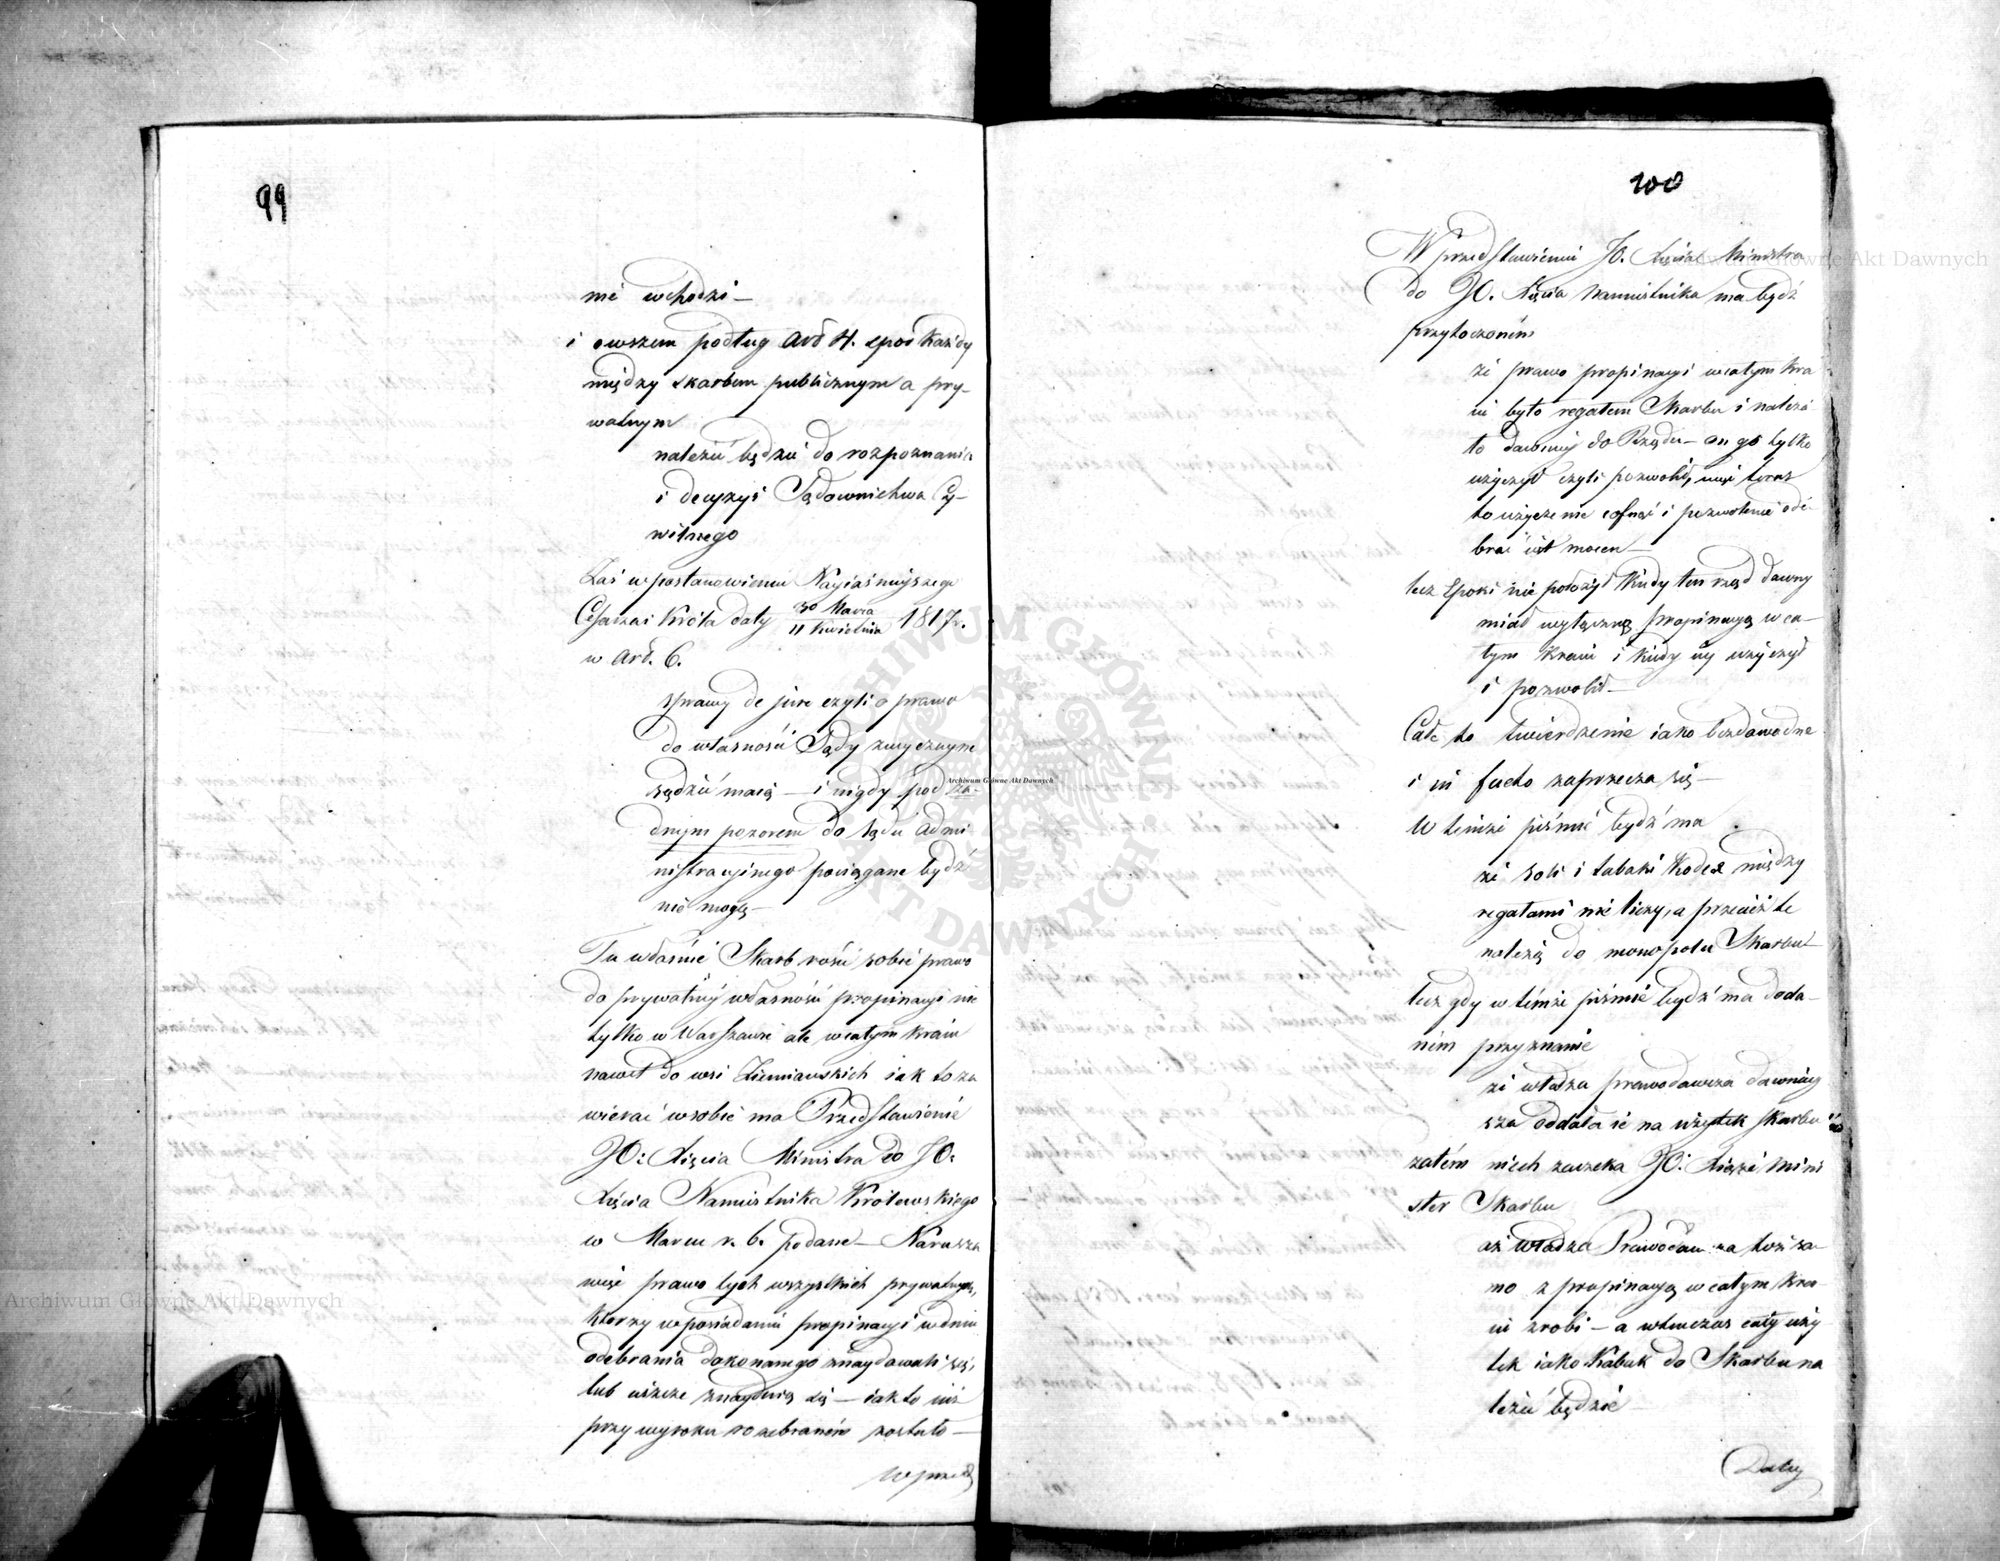 99
nie wchodzi —
i owszem podług Art 4. spór każdy
między skarbem publicznym a pry-
watnym
należeć będzie do rozpoznania
i decyzyi Sądownictwa Cy-
wilnego
Zaś w postanowieniu Nayiaśnieyszego
Cesarza i Króla daty 30 Marca / 11 Kwietnia 1817 r.
w Art. 6.
sprawy de jure czyli o prawo
do własności Sądy zwyczayne
sądzić maią — i nigdy pod ża-
dnym pozorem do Sądu Admi
nistracyinego pociągane bydź
nie mogą —
Tu właśnie Skarb rości sobie prawo
do prywatney własności propinacyi nie
tylko w Warszawie ale w całym kraiu
nawet do wsi Ziemiańskich iak to za
wierać w sobie ma Przedstawienie
JO: Xięcia Ministra do JO:
Xięcia Namiestnika Królewskiego
w Marcu r. b. podane — Narusza
więc prawo tych wszystkich prywatnych,
którzy w posiadaniu propinacyi w dniu
odebrania dokonanego znaydowali się,
lub ieszcze znayduią się — iak to iuż
przy wyroku rozebraném zostało —
W przed
100
W przedstawieniu JO. Xięcia Ministra
do JO. Xięcia Namiestnika ma bydź
przytoczoném
że prawo propinacyi w całym kra
iu było regałem Skarbu i należa
ło dawniey do Rządu — on go tylko
użyczył czyli pozwolił, więc teraz
to użyczenie cofnąć i pozwolenie ode-
brać iest mocen —
lecz Epoki nie położył kiedy ten rząd dawny
miał wyłączną propinacyą w ca-
łym kraiu i kiedy iey użyczył
i pozwolił —
Całe to twierdzenie iako bezdowodne
i in facto zaprzecza się —
W temże piśmie bydź ma
że soli i tabaki Kodex między
regałami nie liczy, a przecież te
należą do monopolu Skarbu —
lecz gdy w témże piśmie bydź ma doda-
ném przyznanie
że władza prawodawcza dawniey
sza oddała ie na użytek Skarbu
zatém niech zaczeka JO: Xiąże Mini
ster Skarbu
aż władza Prawodawcza toż sa-
mo z propinacyą w całym kra-
iu zrobi — a wtenczas cały uży
tek iako Kaduk do Skarbu na
leżeć będzie —
Daley
Archiwum Główne Akt Dawnych
Archiwum Główne Akt Dawnych
Archiwum Główne Akt Dawnych
ARCHIWUM GŁÓWNE AKT DAWNYCH